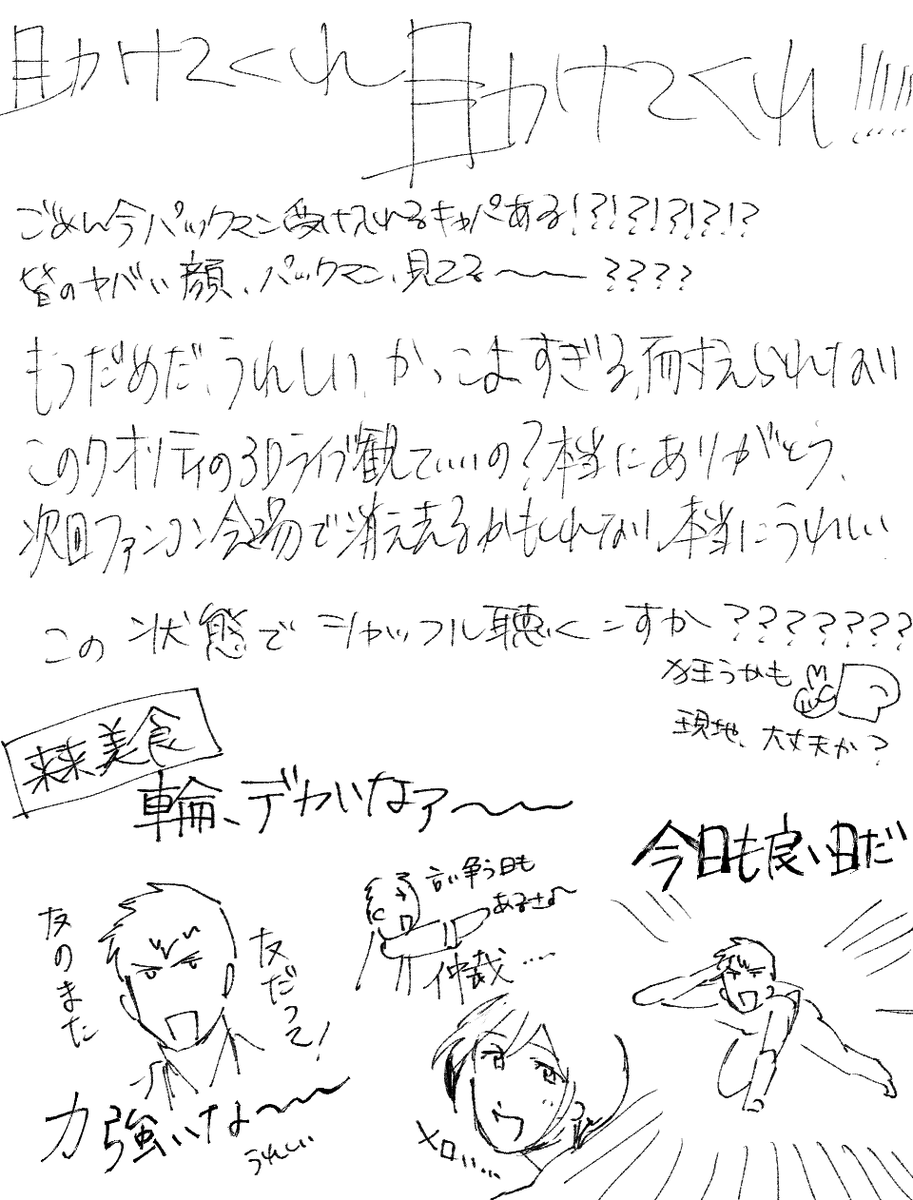 助けてくれ 助けてくれ!!!!!
ごめん今パックマン受け入れるキャパある!?!?!?!?!?
皆のヤバい顔、パックマン、見てる〜〜????
もうだめだ、うれしい、かっこよすぎる、耐えられない
このクオリティの3Dライブ観ていいの?本当にありがとう、
次回ファンコン会場で消え去るかもしれない、本当にうれしい
この状態でシャッフル聴くことすか???????
狂うかも
現地、大丈夫か?
未来美食
輪、デカいなァ〜〜
言い争う日も
あるさな〜
仲裁....
今日も良い日だ
友のまた
友だって!
力強いな〜〜
うれしい
メロい...